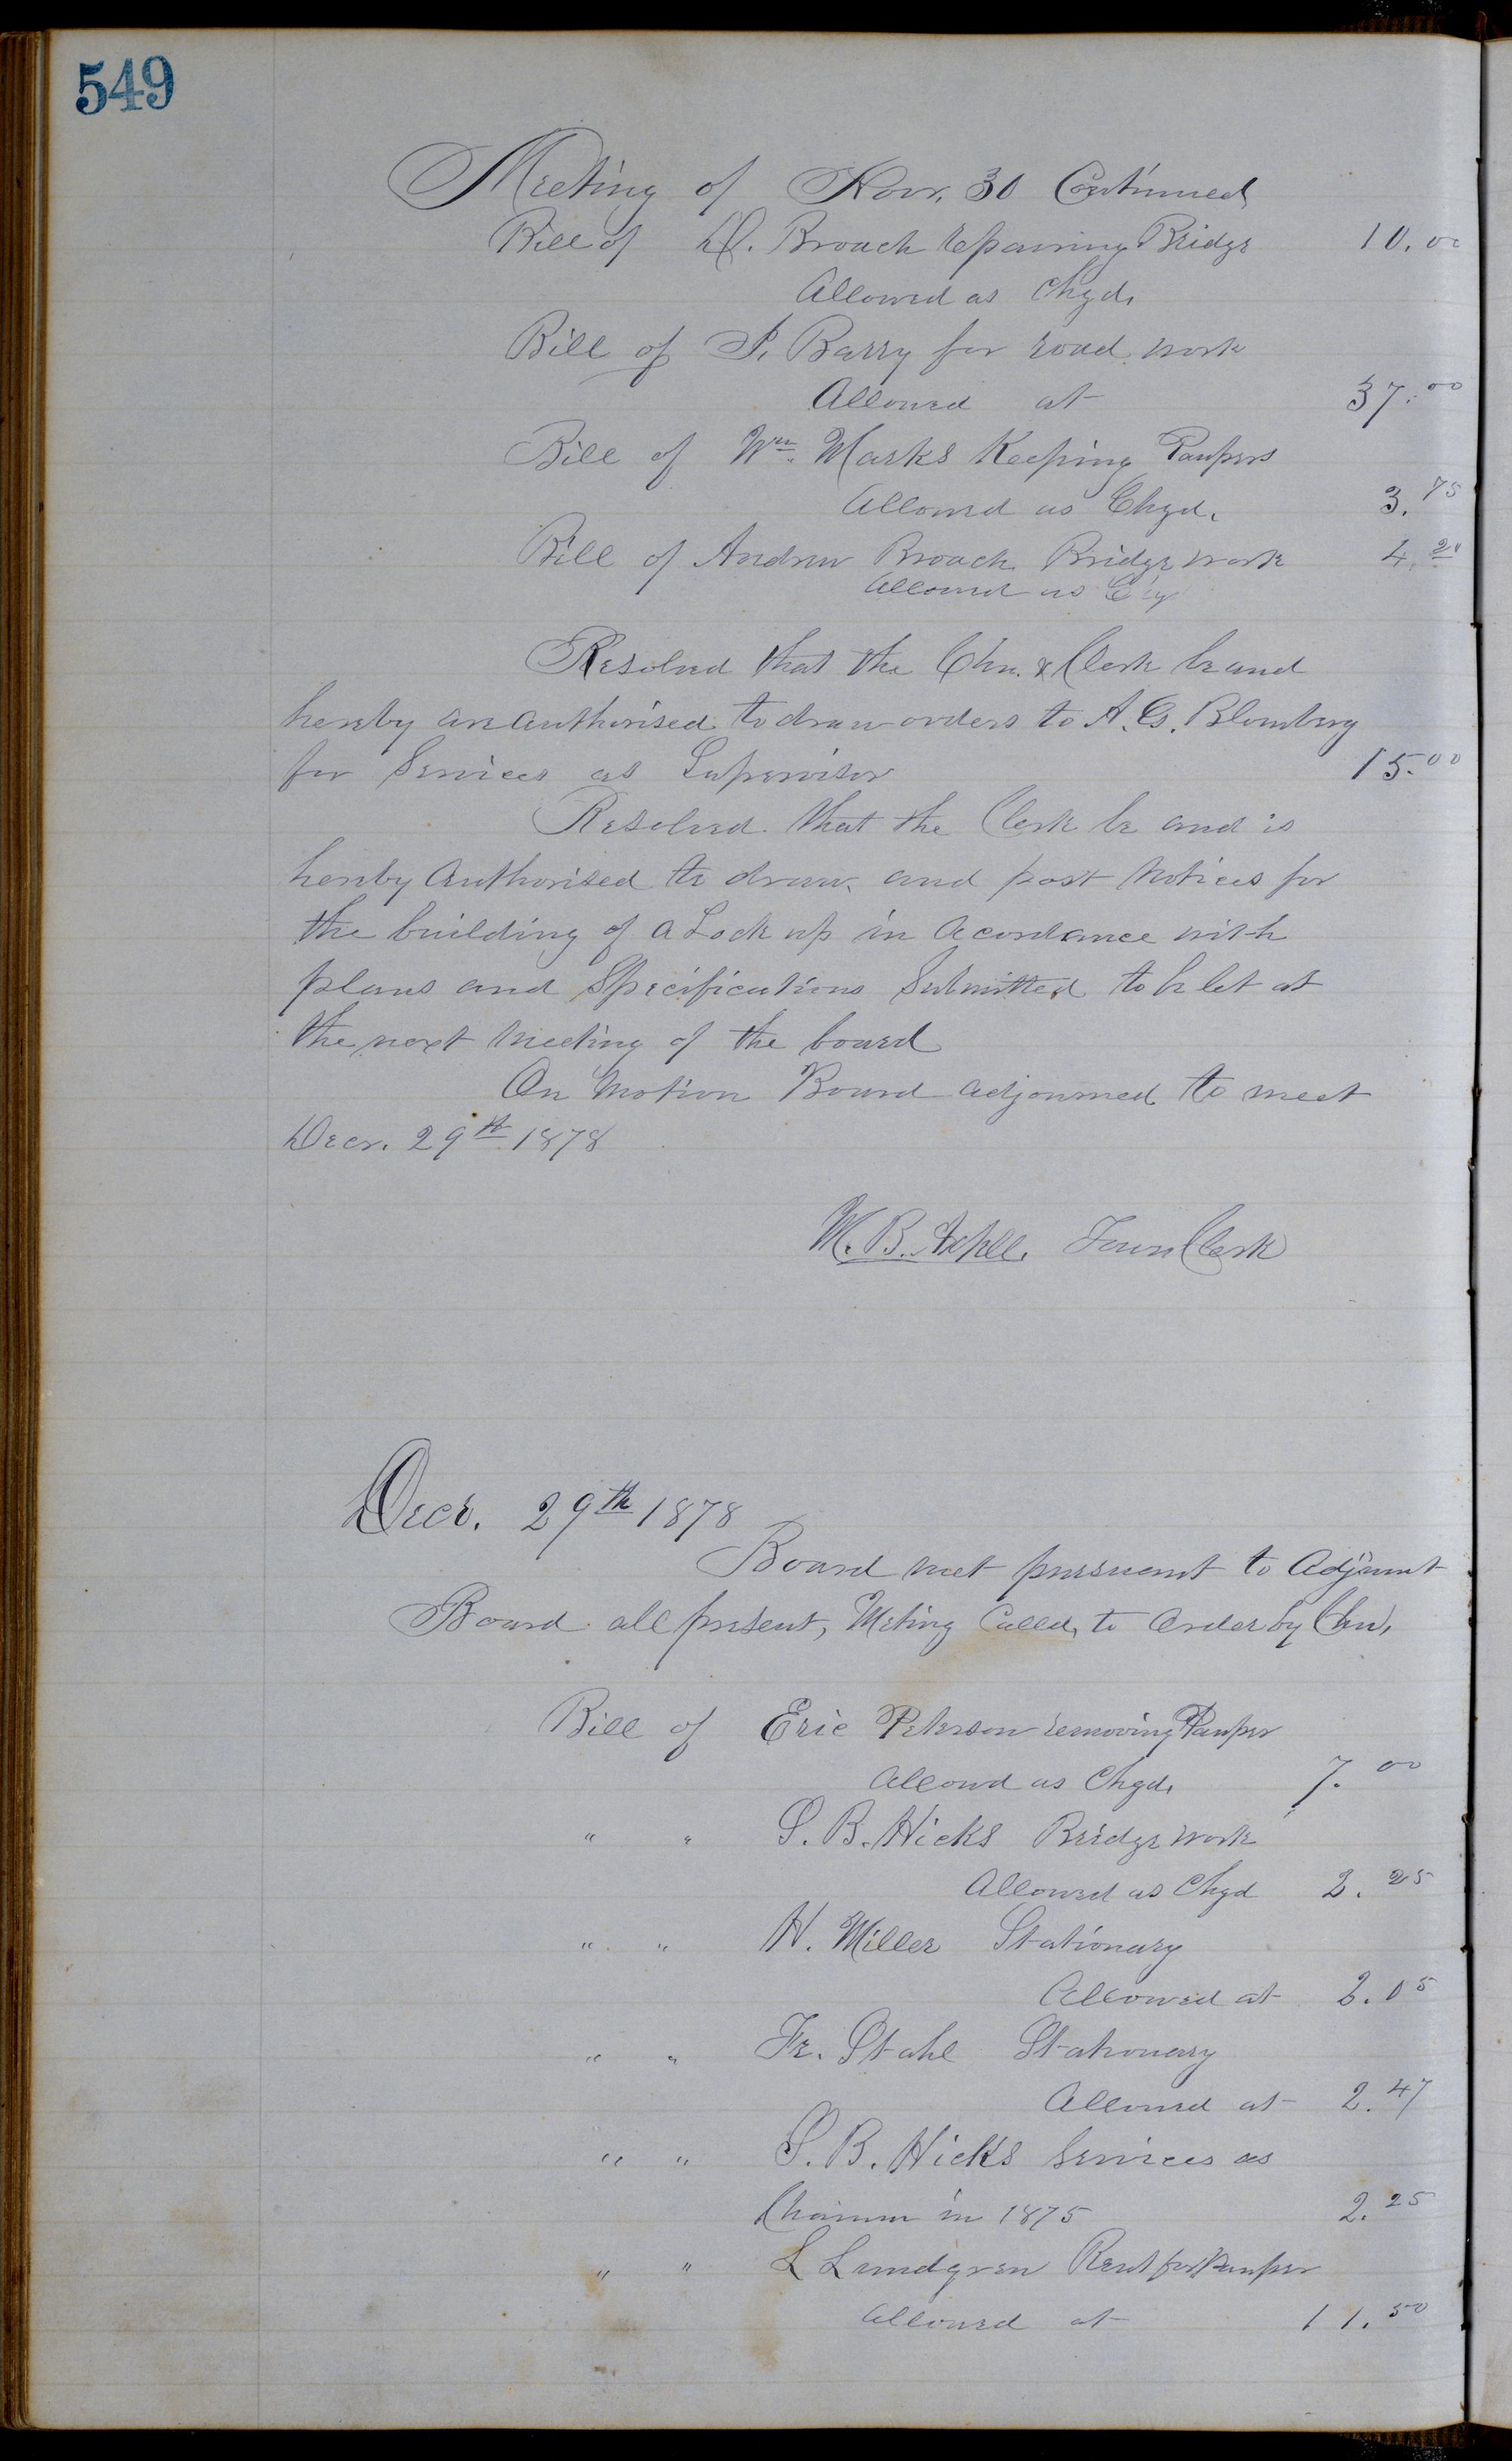 549
Meeting of Novr. 30 Continued
Bill of D. Broach repairing Bridge 10.00
Allowed as Chgd.
Bill of P. Barry for road work
Allowed at 37.00
Bill of Wm. Marks Keeping Paupers
Allowed as Chgd. 3.75
Bill of Andrew Broach Bridge work 4.20
Allowed as Chg
Resolved that the Chn. & Clerk be and
hereby are authorised to draw orders to A. G. Blomberg
for Services as Supervisor 15.00
Resolved that the Clerk be and is
hereby Authorised to draw and post Notices for
the building of a Lock up in Acordance with
plans and Specifications Submitted to be let at
the next Meeting of the board
On Motion Board adjourned to meet
Decr. 29th 1878
W. B. Town Clerk
Decr. 29th 1878
Board met pursuant to Adjmnt
Board all present, Meting Called to Order by Chn.
Bill of Eric Peterson removing Pauper
Allowd as Chgd. 7.00
" " S. B. Hicks Bridge work
Allowed as Chgd 2.25
" " H. Miller Stationary
Allowed at 2.05
" " Fr. Stahl Stationary
Allowed at 2.47
" " S. B. Hicks Services as
Chairman in 1875 2.25
" " L Lundgren Rent for Pauper
Allowed at 11.50